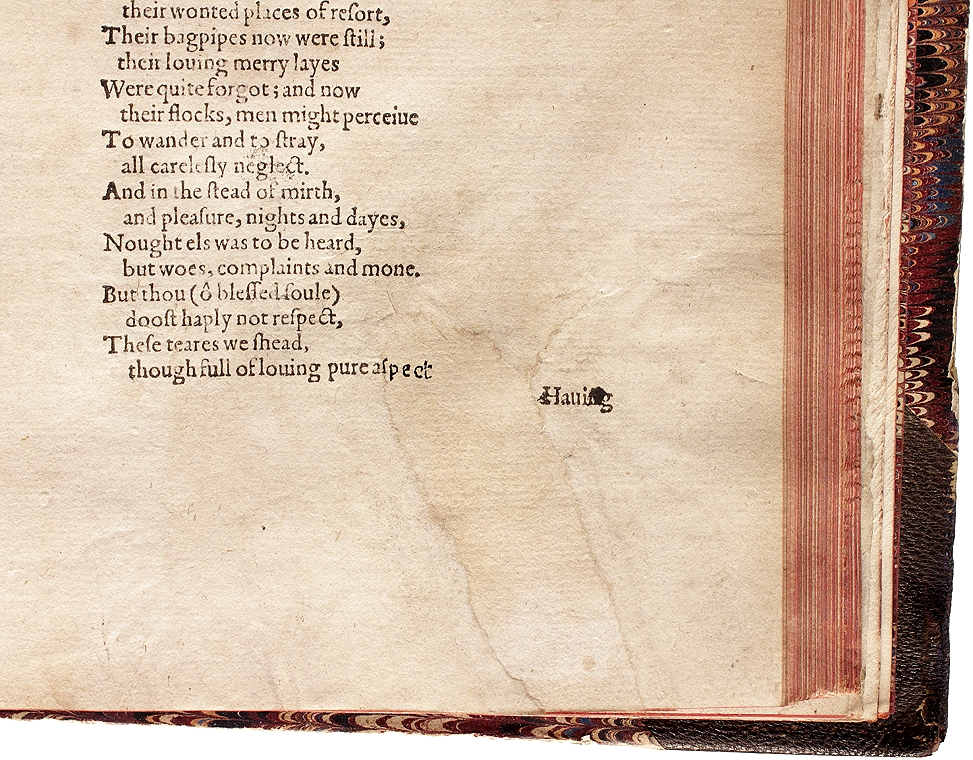 their wonted places of reſort,
Their bagpipes now were ſtill;
their louing merry layes
Were quite forgot; and now
their flocks, men might perceiue
To wander and to ſtray,
all careleſly neglect.
And in the ſtead of mirth,
and pleaſure, nights and dayes,
Nought els was to be heard,
but woes, complaints and mone.
But thou (ô bleſſed ſoule)
dooſt haply not reſpect,
Theſe teares we ſhead,
though full of louing pure aſpect
Hauing